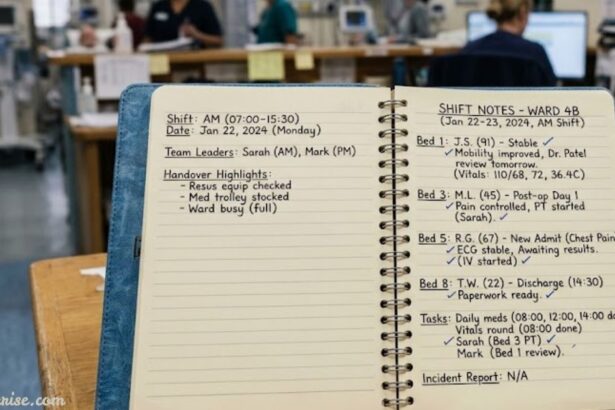 Shift: AM (07:00-15:30)
Date: Jan 22, 2024 (Monday)
Team Leaders: Sarah (AM), Mark (PM)
Handover Highlights:
- Resus equip checked
- Med trolley stocked
- Ward busy (full)
SHIFT NOTES - WARD 4B
(Jan 22-23, 2024, AM Shift)
Bed 1: J.S. (91) - Stable ✓
✓Mobility improved, Dr. Patel
review tomorrow.
(Vitals: 110/68, 72, 36.4C)
Bed 3: M.L. (45) - Post-op Day 1
✓Pain controlled, PT started
(Sarah). ✓
Bed 5: R.G. (67) - New Admit (Chest Pain
✓ECG stable, Awaiting results.
✓(IV started) ✓
Bed 8: T.W. (22) - Discharge (14:30)
✓Paperwork ready. ✓
Tasks: Daily meds (08:00, 12:00, 14:00
Vitals round (08:00 done)
✓Sarah (Bed 3 PT) ✓
Mark (Bed 1 review).
Incident Report: N/A
rise.com